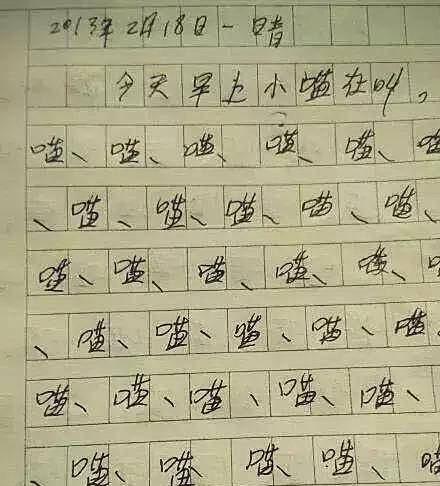 2013年2月18日一晴
今天早上小喵在叫,
喵、喵、喵、喵、喵、喵
、喵、喵、喵、喵、喵、
喵、喵、喵、喵、喵、
、喵、喵、喵、喵、喵
喵、喵、喵、喵、喵、
、喵、喵、喵、喵、喵